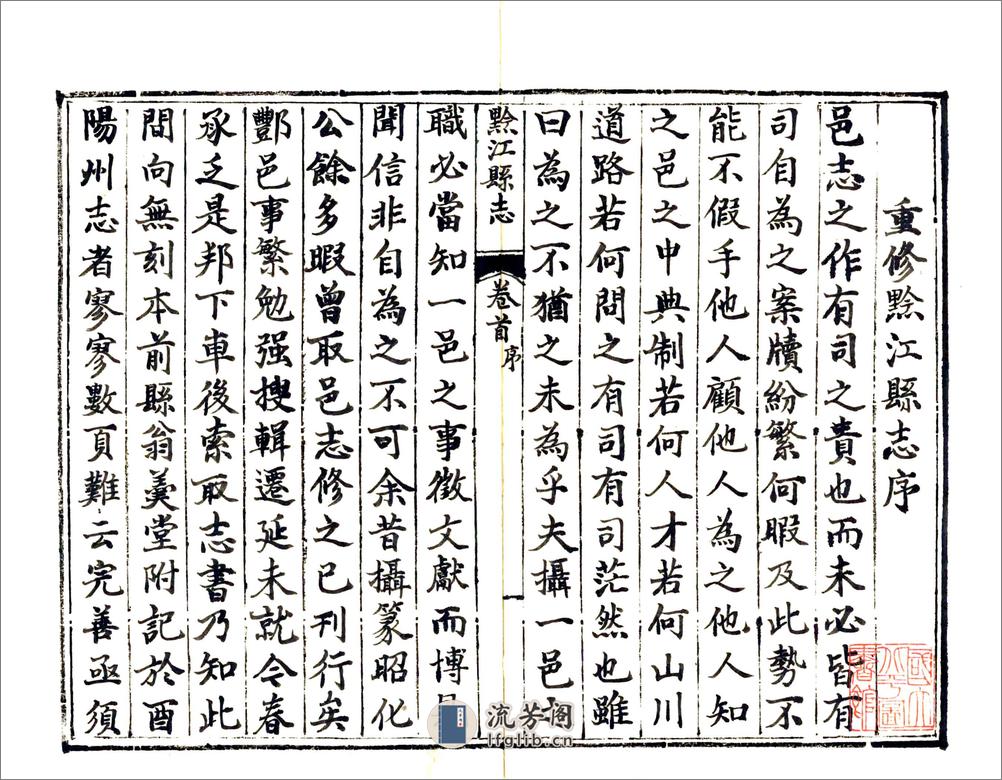 重修黔江縣志序
邑志之作有司之責也而未必皆有
司自為之案牘紛繁何暇及此勢不
能不假手他人顧他人為之他人知
之邑之中典制若何人才若何山川
道路若何問之有司有司茫然也雖
曰為之不猶之未為乎夫攝一邑
黔江縣志
卷首
序
一
職必當知一邑之事徵文獻而博
聞信非自為之不可余昔攝篆昭化
公餘多暇曾取邑志修之已刊行矣
酆邑事繁勉强搜輯遷延未就今春
承乏是邦下車後索取志書乃知此
間向無刻本前縣翁羹堂附記於酉
陽州志者寥寥數頁難云完善亟須
流芳阁
lfglib.cn